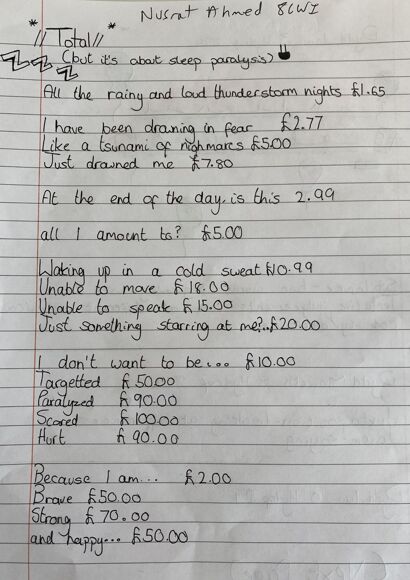 Nusrat Ahmed 8CW1
* // Total // *
(but it's about sleep paralysis)
All the rainy and loud thunderstorm nights £1.65
I have been drowning in fear £2.77
Like a tsunami of nighmares £5.00
Just drowned me £7.80
At the end of the day, is this 2.99
all I amount to? £5.00
Waking up in a cold sweat £10.99
Unable to move £18.00
Unable to speak £15.00
Just something starring at me?.. £20.00
I don't want to be... £10.00
Targetted £50.00
Paralyzed £90.00
Scared £100.00
Hurt £90.00
Because I am... £2.00
Brave £50.00
Strong £70.00
and happy... £50.00